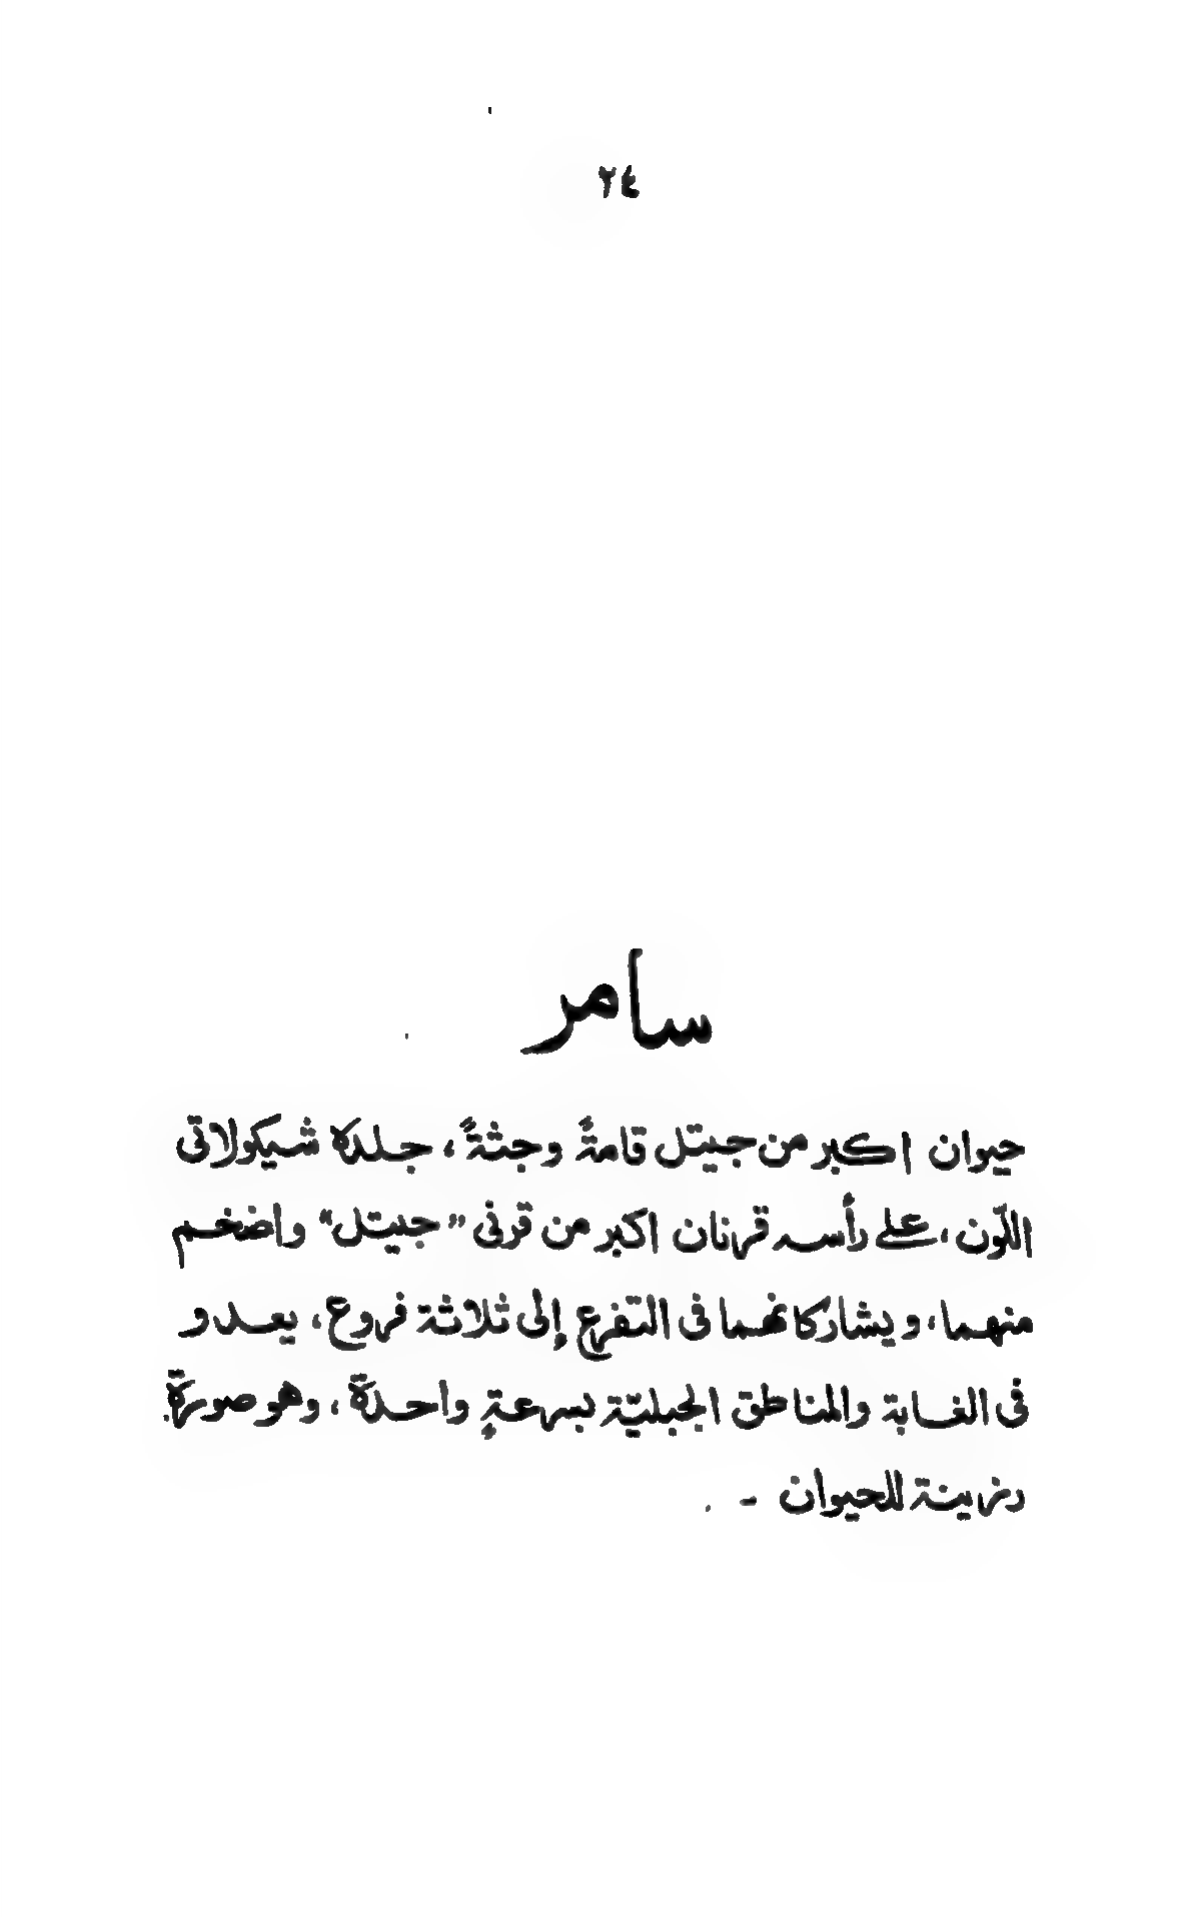 ٢٤
سامر
حيوان اكبر من جيتل قامةً وجثةً، جلده شيكولاتى
اللّون، على رأسه قرنان اكبر من قرنى "جيتل" واضخم
منهما، ويشاركانهما فى التفرع إلى ثلاثة فروع، يعدو
فى الغابة والمناطق الجبليّة بسرعةٍ واحدة، وهو صورة
رزينة للحيوان -